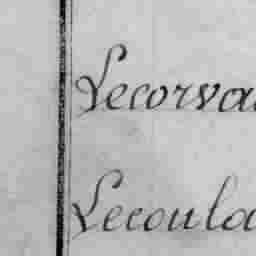 Lecorva
Lecoula